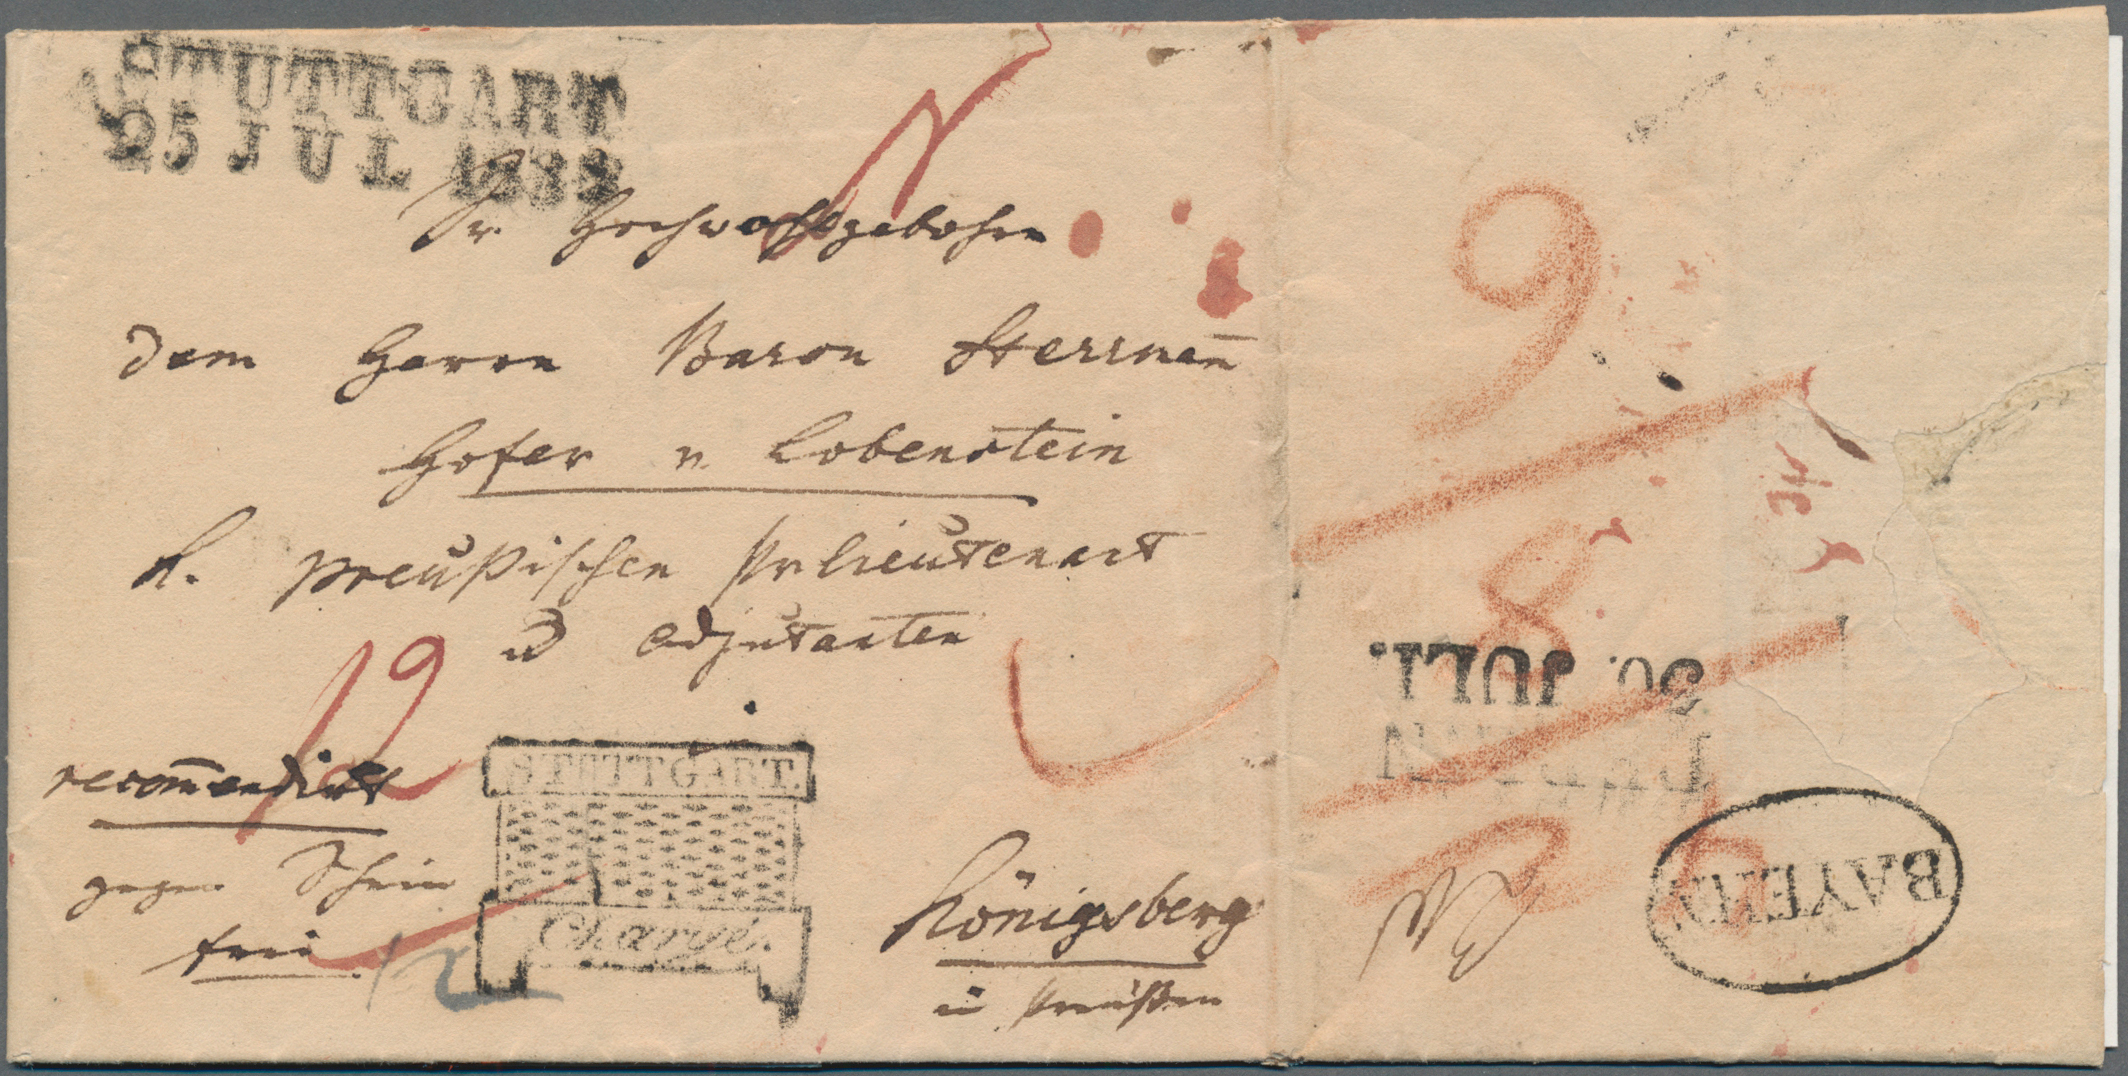 STUTTGART
25 JUL 183
Sr Hochwohlgebohren
dem Herrn Baron Herrman̄
Hofer v. Lobenstein
K. Preußischen Pr lieutenant
u adjutanten
recom̄andirt
gegen Schein
frei
STUTTGART.
Chargé.
Königsberg
in Preußen
9
8
30. JULI.
BAYERN.